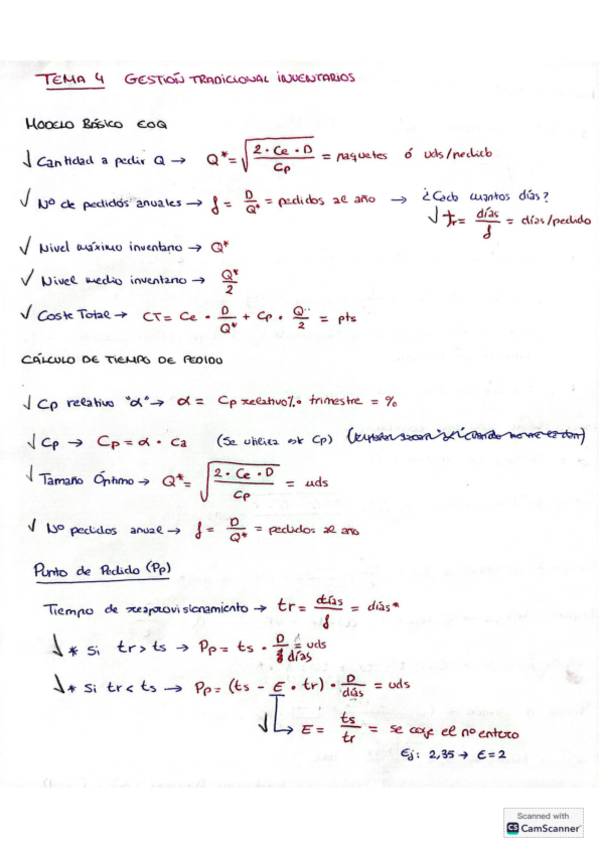 TEMA 4 GESTIÓN TRADICIONAL INVENTARIOS
MODELO BÁSICO EOQ
√ Cantidad a pedir Q → Q* = √(2·Ce·D / Cp) = paquetes ó uds/pedido
√ Nº de pedidos anuales → f = D/Q* = pedidos al año → ¿Cada cuantos días?
√ tr = días/f = días/pedido
√ Nivel máximo inventario → Q*
√ Nivel medio inventario → Q*/2
√ Coste Total → CT = Ce · D/Q* + Cp · Q*/2 = pts
CÁLCULO DE TIEMPO DE PEDIDO
√ Cp relativo "α" → α = Cp relativo% · trimestre = %
√ Cp → Cp = α · Ca (Se utiliza este Cp)
√ Tamaño Óptimo → Q* = √(2·Ce·D / Cp) = uds
√ Nº pedidos anual → f = D/Q* = pedidos al año
Punto de Pedido (Pp)
Tiempo de reaprovisionamiento → tr = días/f = días*
√ * Si tr > ts → Pp = ts · D/días = uds
√ * Si tr < ts → Pp = (ts - E · tr) · D/días = uds
√ → E = ts/tr = se coge el nº entero
Ej: 2,35 → E = 2
Scanned with
CS CamScanner